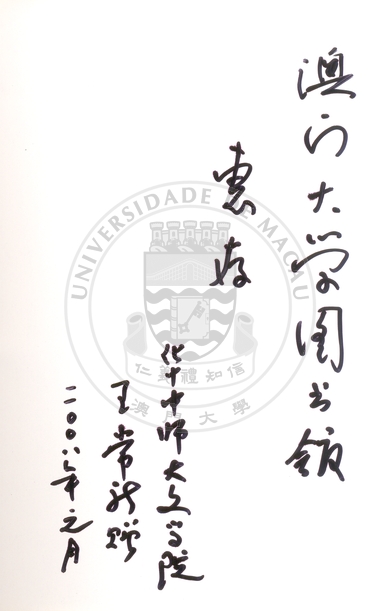 澳门大学图书馆
惠存
华中师大文学院
王常新赠
二〇〇六年元月
UNIVERSIDADE DE MACAU
仁義禮知信
澳門大學